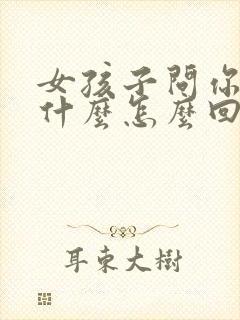 女孩子問你
什麼怎麼回
耳東大樹